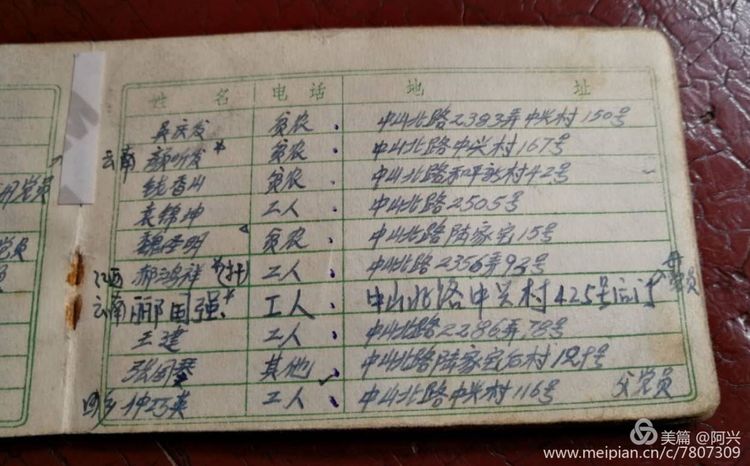 姓名 电话 地址
吴庆发 贫农、 中山北路2393弄中兴村150号
云南 颜听发 贫农、 中山北路中兴村167号
钱香山 贫农、 中山北路和平新村42号
袁锦坤 工人、 中山北路2505号
魏李明 贫农、 中山北路陆家宅15号
江西 郝鸿祥 工人、 中山北路2356弄93号 母党员
云南 郦国强 工人、 中山北路中兴村425号后门
王建 工人、 中山北路2286弄78号
张 其他、 中山北路陆家宅后村
回乡 钟巧英 工人、 中山北路中兴村116号 父党员
党员
党员
美篇 @阿兴
www.meipian.cn/c/7807309